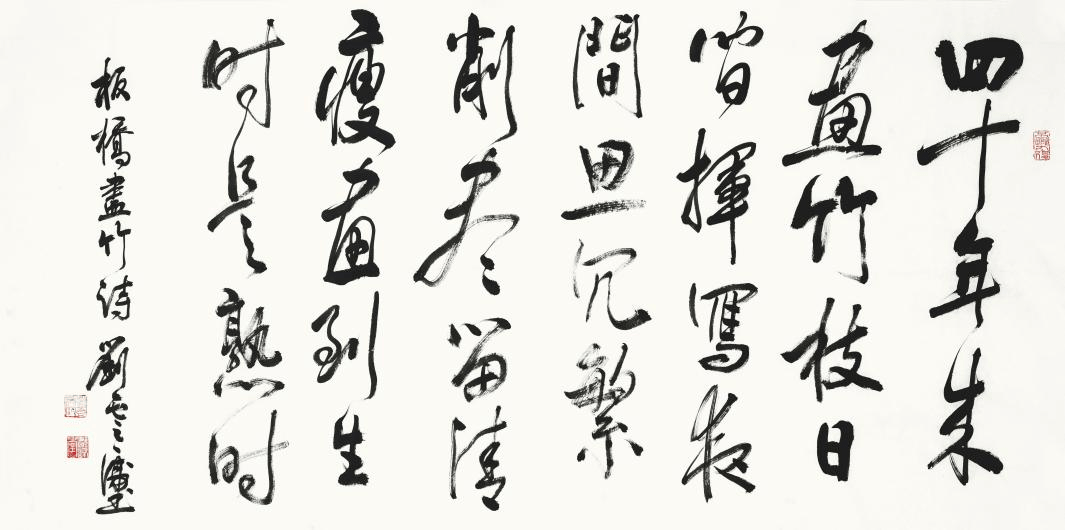 四十年来
畫竹枝日
間揮寫夜
間思冗繁
削尽留清
瘦畫到生
时是熟时
板橋畫竹诗 劉雲